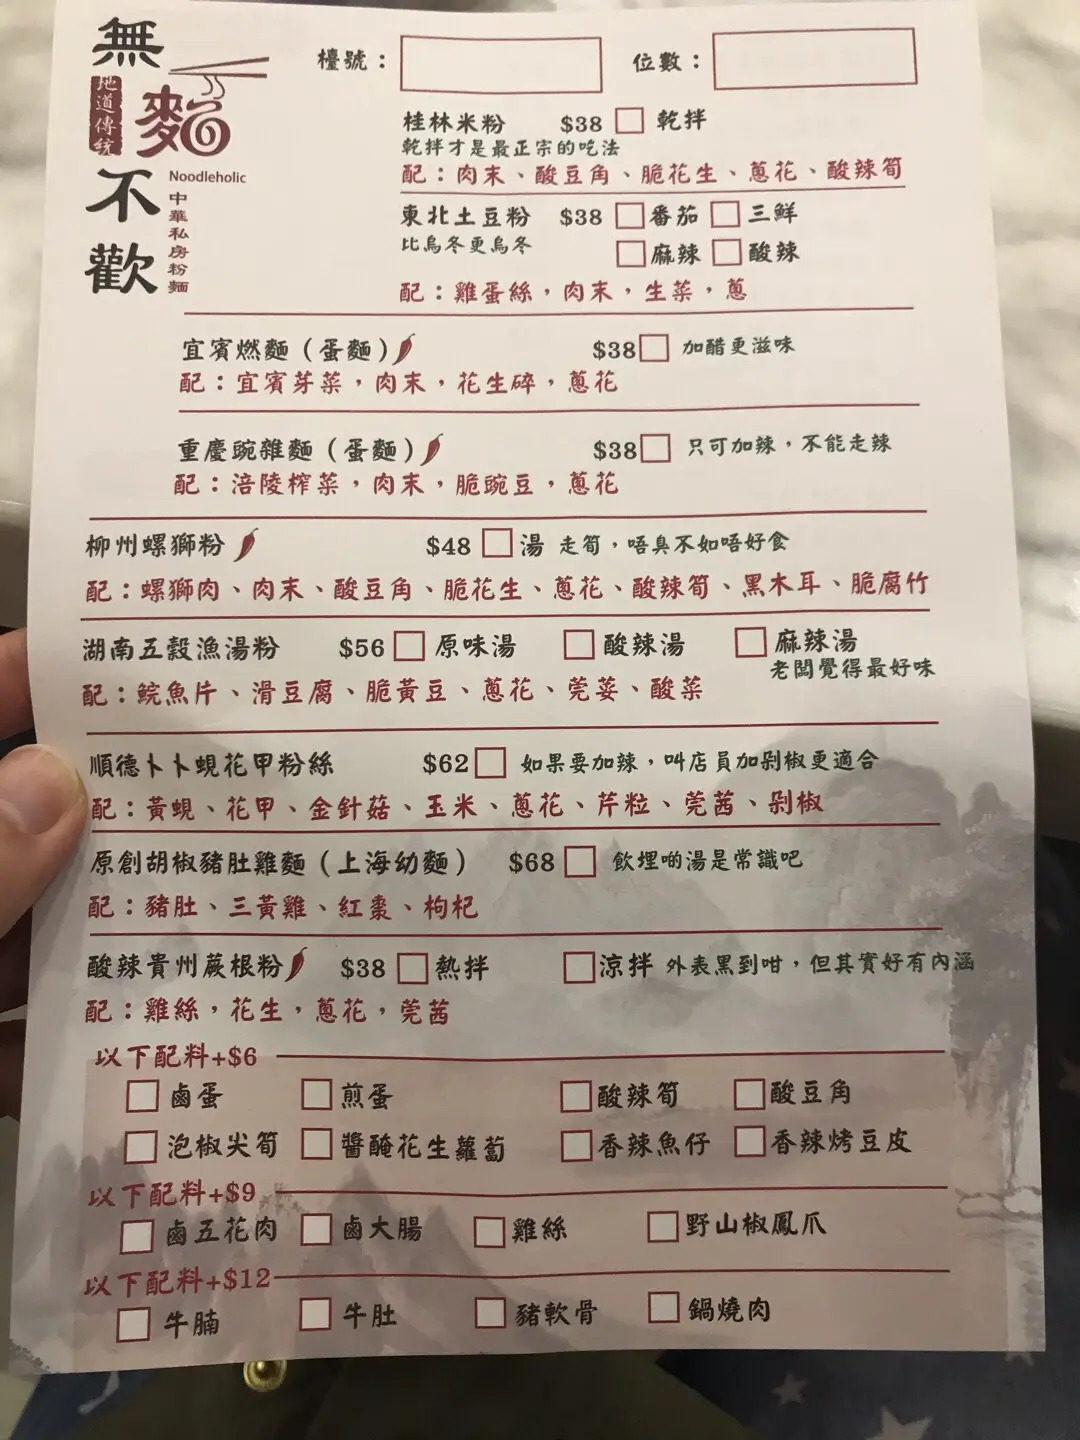 無麵不歡
地道傳統
Noodleholic
中華私房粉麵
檯號：
位數：
桂林米粉 $38 □ 乾拌
乾拌才是最正宗的吃法
配：肉末、酸豆角、脆花生、蔥花、酸辣筍
東北土豆粉 $38 □ 番茄 □ 三鮮
比烏冬更烏冬 □ 麻辣 □ 酸辣
配：雞蛋絲，肉末，生菜，蔥
宜賓燃麵（蛋麵） $38 □ 加醋更滋味
配：宜賓芽菜，肉末，花生碎，蔥花
重慶豌雜麵（蛋麵） $38 □ 只可加辣，不能走辣
配：涪陵榨菜，肉末，脆豌豆，蔥花
柳州螺獅粉 $48 □ 湯 走筍，唔臭不如唔好食
配：螺獅肉、肉末、酸豆角、脆花生、蔥花、酸辣筍、黑木耳、脆腐竹
湖南五穀漁湯粉 $56 □ 原味湯 □ 酸辣湯 □ 麻辣湯
老闆覺得最好味
配：鯇魚片、滑豆腐、脆黃豆、蔥花、莞荽、酸菜
順德卜卜蜆花甲粉絲 $62 □ 如果要加辣，叫店員加剁椒更適合
配：黃蜆、花甲、金針菇、玉米、蔥花、芹粒、莞茜、剁椒
原創胡椒豬肚雞麵（上海幼麵） $68 □ 飲埋啲湯是常識吧
配：豬肚、三黃雞、紅棗、枸杞
酸辣貴州蕨根粉 $38 □ 熱拌 □ 涼拌 外表黑到咁，但其實好有內涵
配：雞絲，花生，蔥花，莞茜
以下配料+$6
□ 鹵蛋 □ 煎蛋 □ 酸辣筍 □ 酸豆角
□ 泡椒尖筍 □ 醬醃花生蘿蔔 □ 香辣魚仔 □ 香辣烤豆皮
以下配料+$9
□ 鹵五花肉 □ 鹵大腸 □ 雞絲 □ 野山椒鳳爪
以下配料+$12
□ 牛腩 □ 牛肚 □ 豬軟骨 □ 鍋燒肉